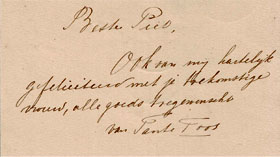 Beste Piet,
Ook van mij hartelijk
gefeliciteerd met je toekomstige
vrouw, alle goeds toegewenscht
van Tante Toos